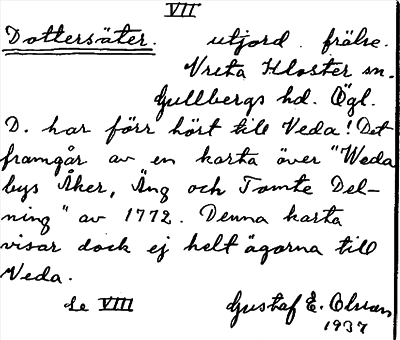 VII
Dottersäter. utjord. frälse.
Vreta Kloster sn.
Gullbergs hd. Ögl.
D. har förr hört till Veda! Det
framgår av en karta över "Weda
bys Åker, Äng och Tomte Del-
ning" av 1772. Denna karta
visar dock ej helt ägorna till
Veda.
Se VIII Gustaf E. Olsson
1937